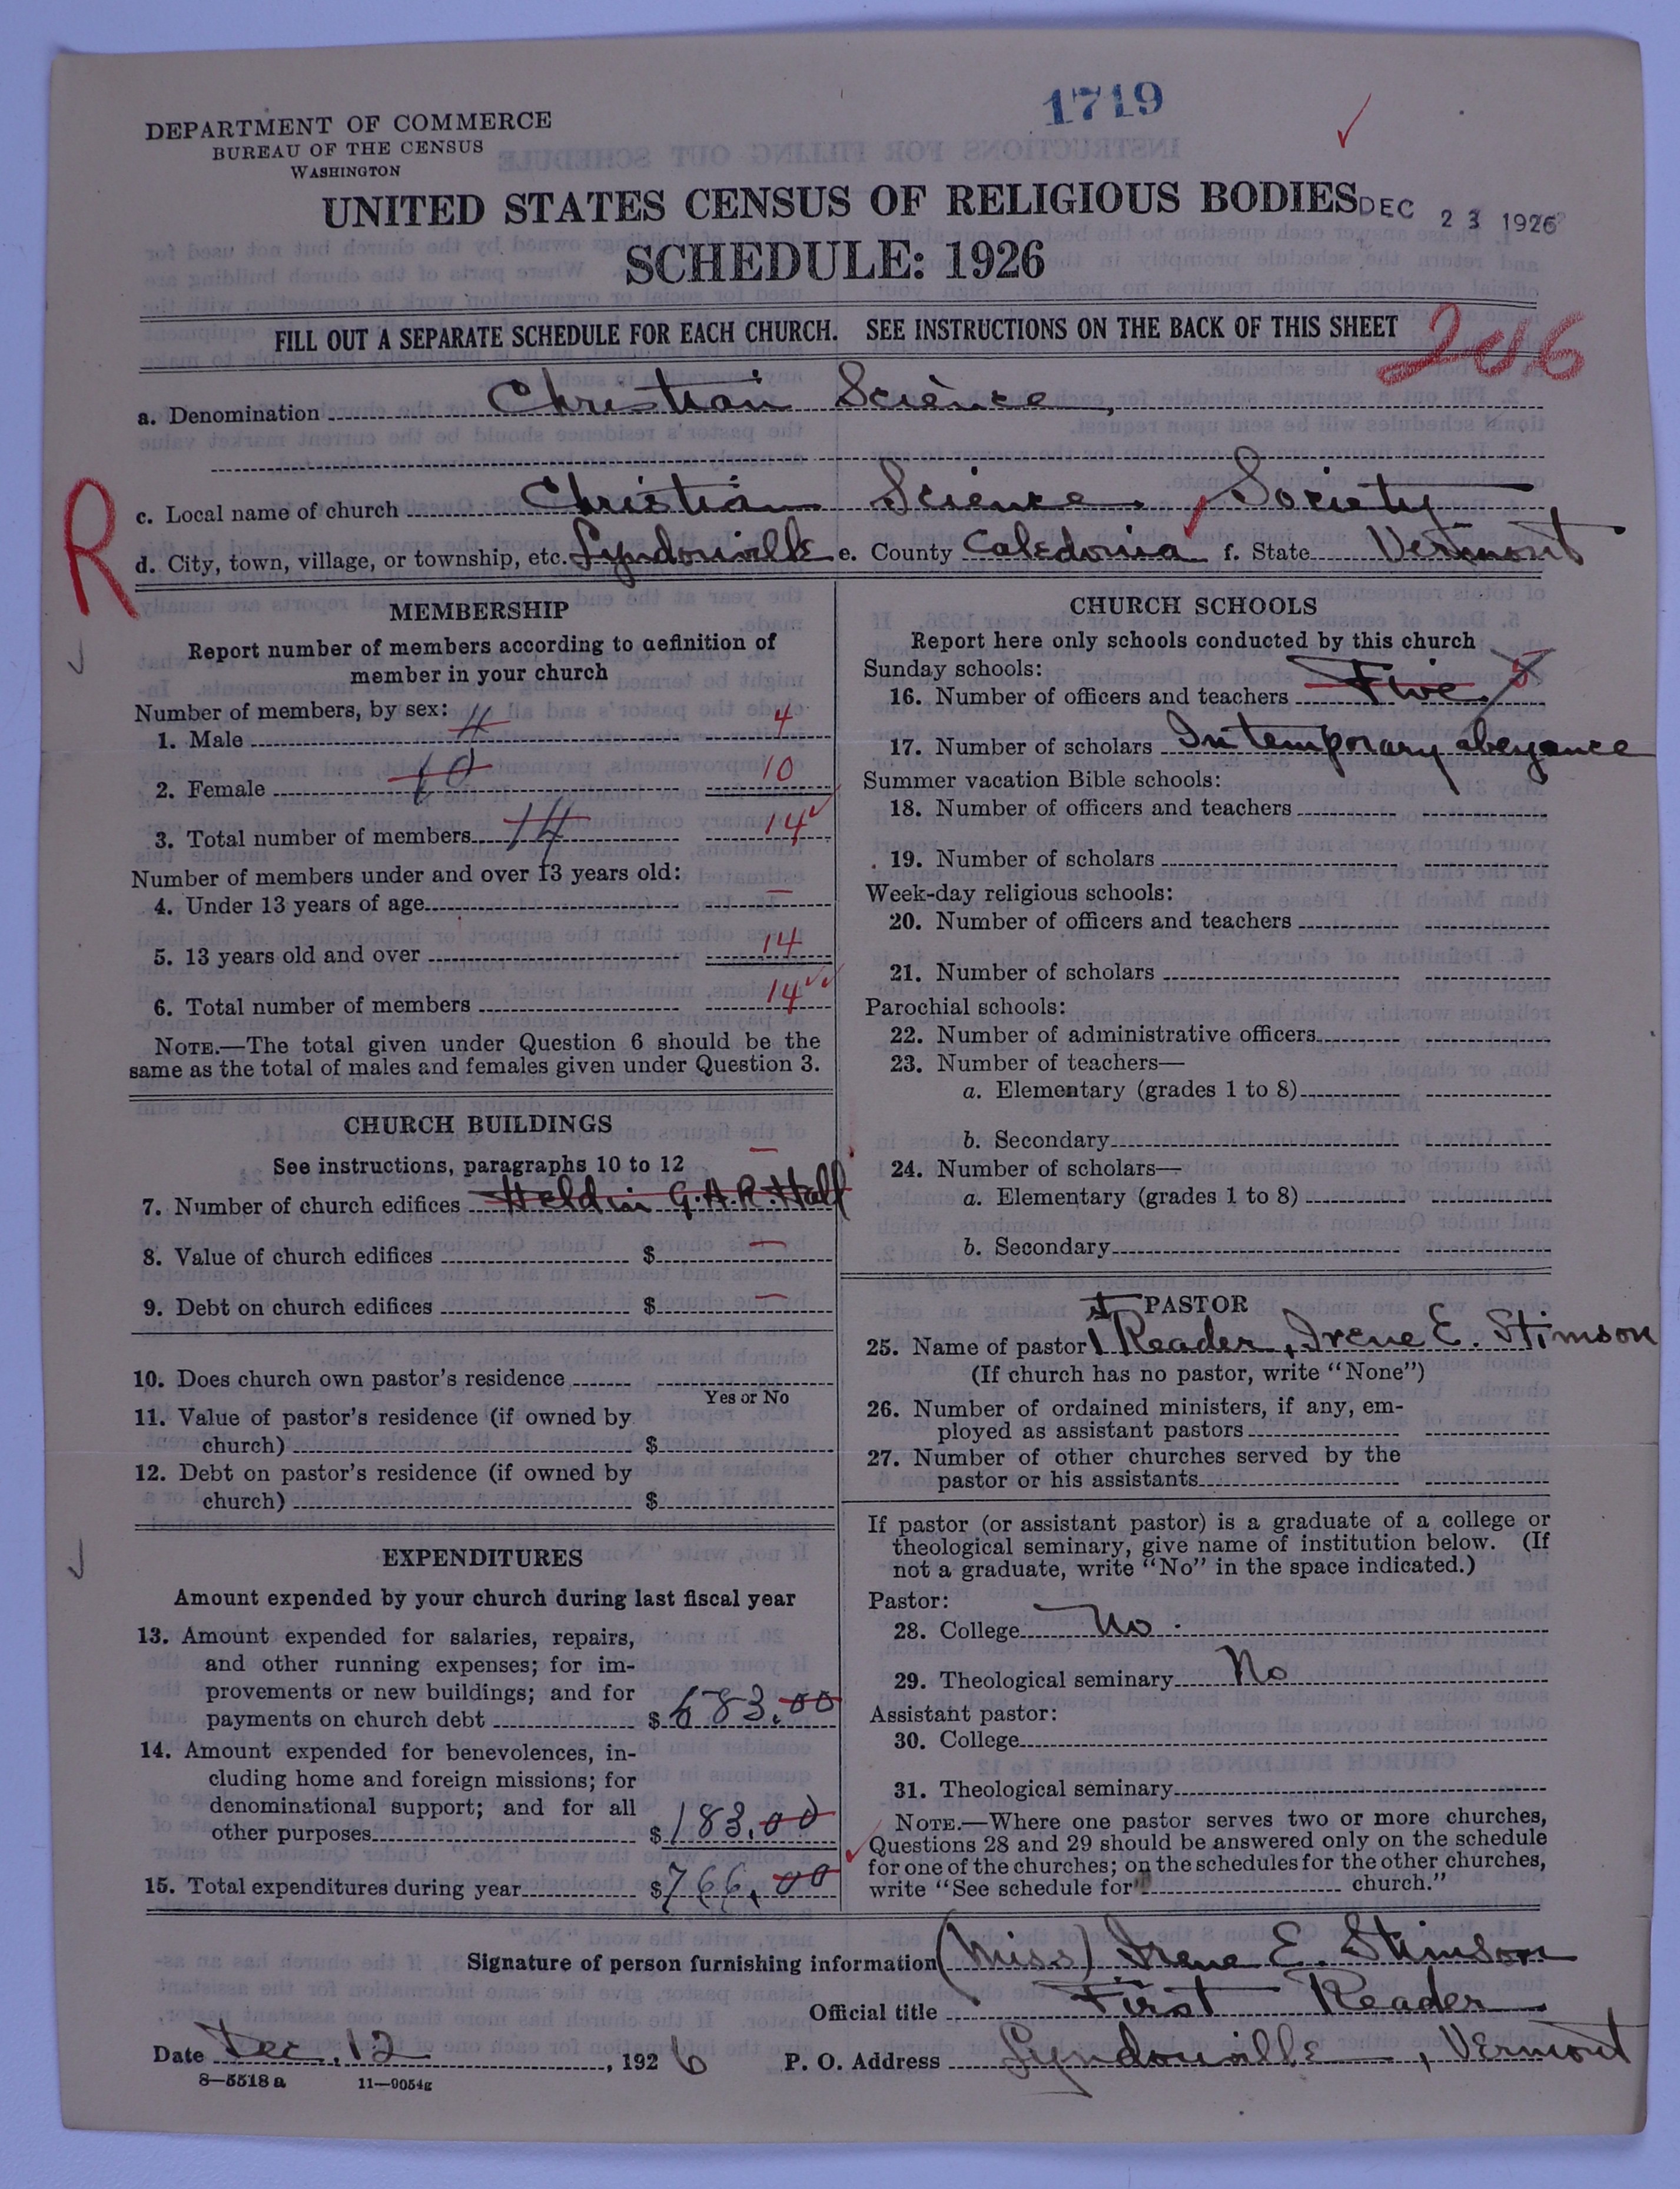 1719
DEPARTMENT OF COMMERCE
BUREAU OF THE CENSUS
WASHINGTON
UNITED STATES CENSUS OF RELIGIOUS BODIES
DEC 23 1926
SCHEDULE: 1926
FILL OUT A SEPARATE SCHEDULE FOR EACH CHURCH. SEE INSTRUCTIONS ON THE BACK OF THIS SHEET
206
a. Denomination Christian Science,
R
c. Local name of church Christian Science Society
d. City, town, village, or township, etc. Lyndonville e. County Caledonia f. State Vermont
MEMBERSHIP
Report number of members according to definition of
member in your church
Number of members, by sex:
1. Male 4 4
2. Female 10 10
3. Total number of members 14 14
Number of members under and over 13 years old:
4. Under 13 years of age —
5. 13 years old and over 14
6. Total number of members 14
NOTE.—The total given under Question 6 should be the
same as the total of males and females given under Question 3.
CHURCH BUILDINGS
See instructions, paragraphs 10 to 12
7. Number of church edifices Held in G.A.R. Hall —
8. Value of church edifices $ —
9. Debt on church edifices $ —
10. Does church own pastor's residence
Yes or No
11. Value of pastor's residence (if owned by
church) $
12. Debt on pastor's residence (if owned by
church) $
EXPENDITURES
Amount expended by your church during last fiscal year
13. Amount expended for salaries, repairs,
and other running expenses; for im-
provements or new buildings; and for
payments on church debt $ 583.00
14. Amount expended for benevolences, in-
cluding home and foreign missions; for
denominational support; and for all
other purposes $ 183.00
15. Total expenditures during year $ 766.00
CHURCH SCHOOLS
Report here only schools conducted by this church
Sunday schools:
16. Number of officers and teachers Five 5
17. Number of scholars In temporary abeyance
Summer vacation Bible schools:
18. Number of officers and teachers
19. Number of scholars
Week-day religious schools:
20. Number of officers and teachers
21. Number of scholars
Parochial schools:
22. Number of administrative officers
23. Number of teachers—
a. Elementary (grades 1 to 8)
b. Secondary
24. Number of scholars—
a. Elementary (grades 1 to 8)
b. Secondary
PASTOR
25. Name of pastor 1st Reader, Irene E. Stimson
(If church has no pastor, write "None")
26. Number of ordained ministers, if any, em-
ployed as assistant pastors
27. Number of other churches served by the
pastor or his assistants
If pastor (or assistant pastor) is a graduate of a college or
theological seminary, give name of institution below. (If
not a graduate, write "No" in the space indicated.)
Pastor:
28. College No.
29. Theological seminary No
Assistant pastor:
30. College
31. Theological seminary
NOTE.—Where one pastor serves two or more churches,
Questions 28 and 29 should be answered only on the schedule
for one of the churches; on the schedules for the other churches,
write "See schedule for church."
Signature of person furnishing information (Miss) Irene E. Stimson
Official title First Reader
Date Dec. 12, 1926 P. O. Address Lyndonville, Vermont
8—5518 a 11—9054g